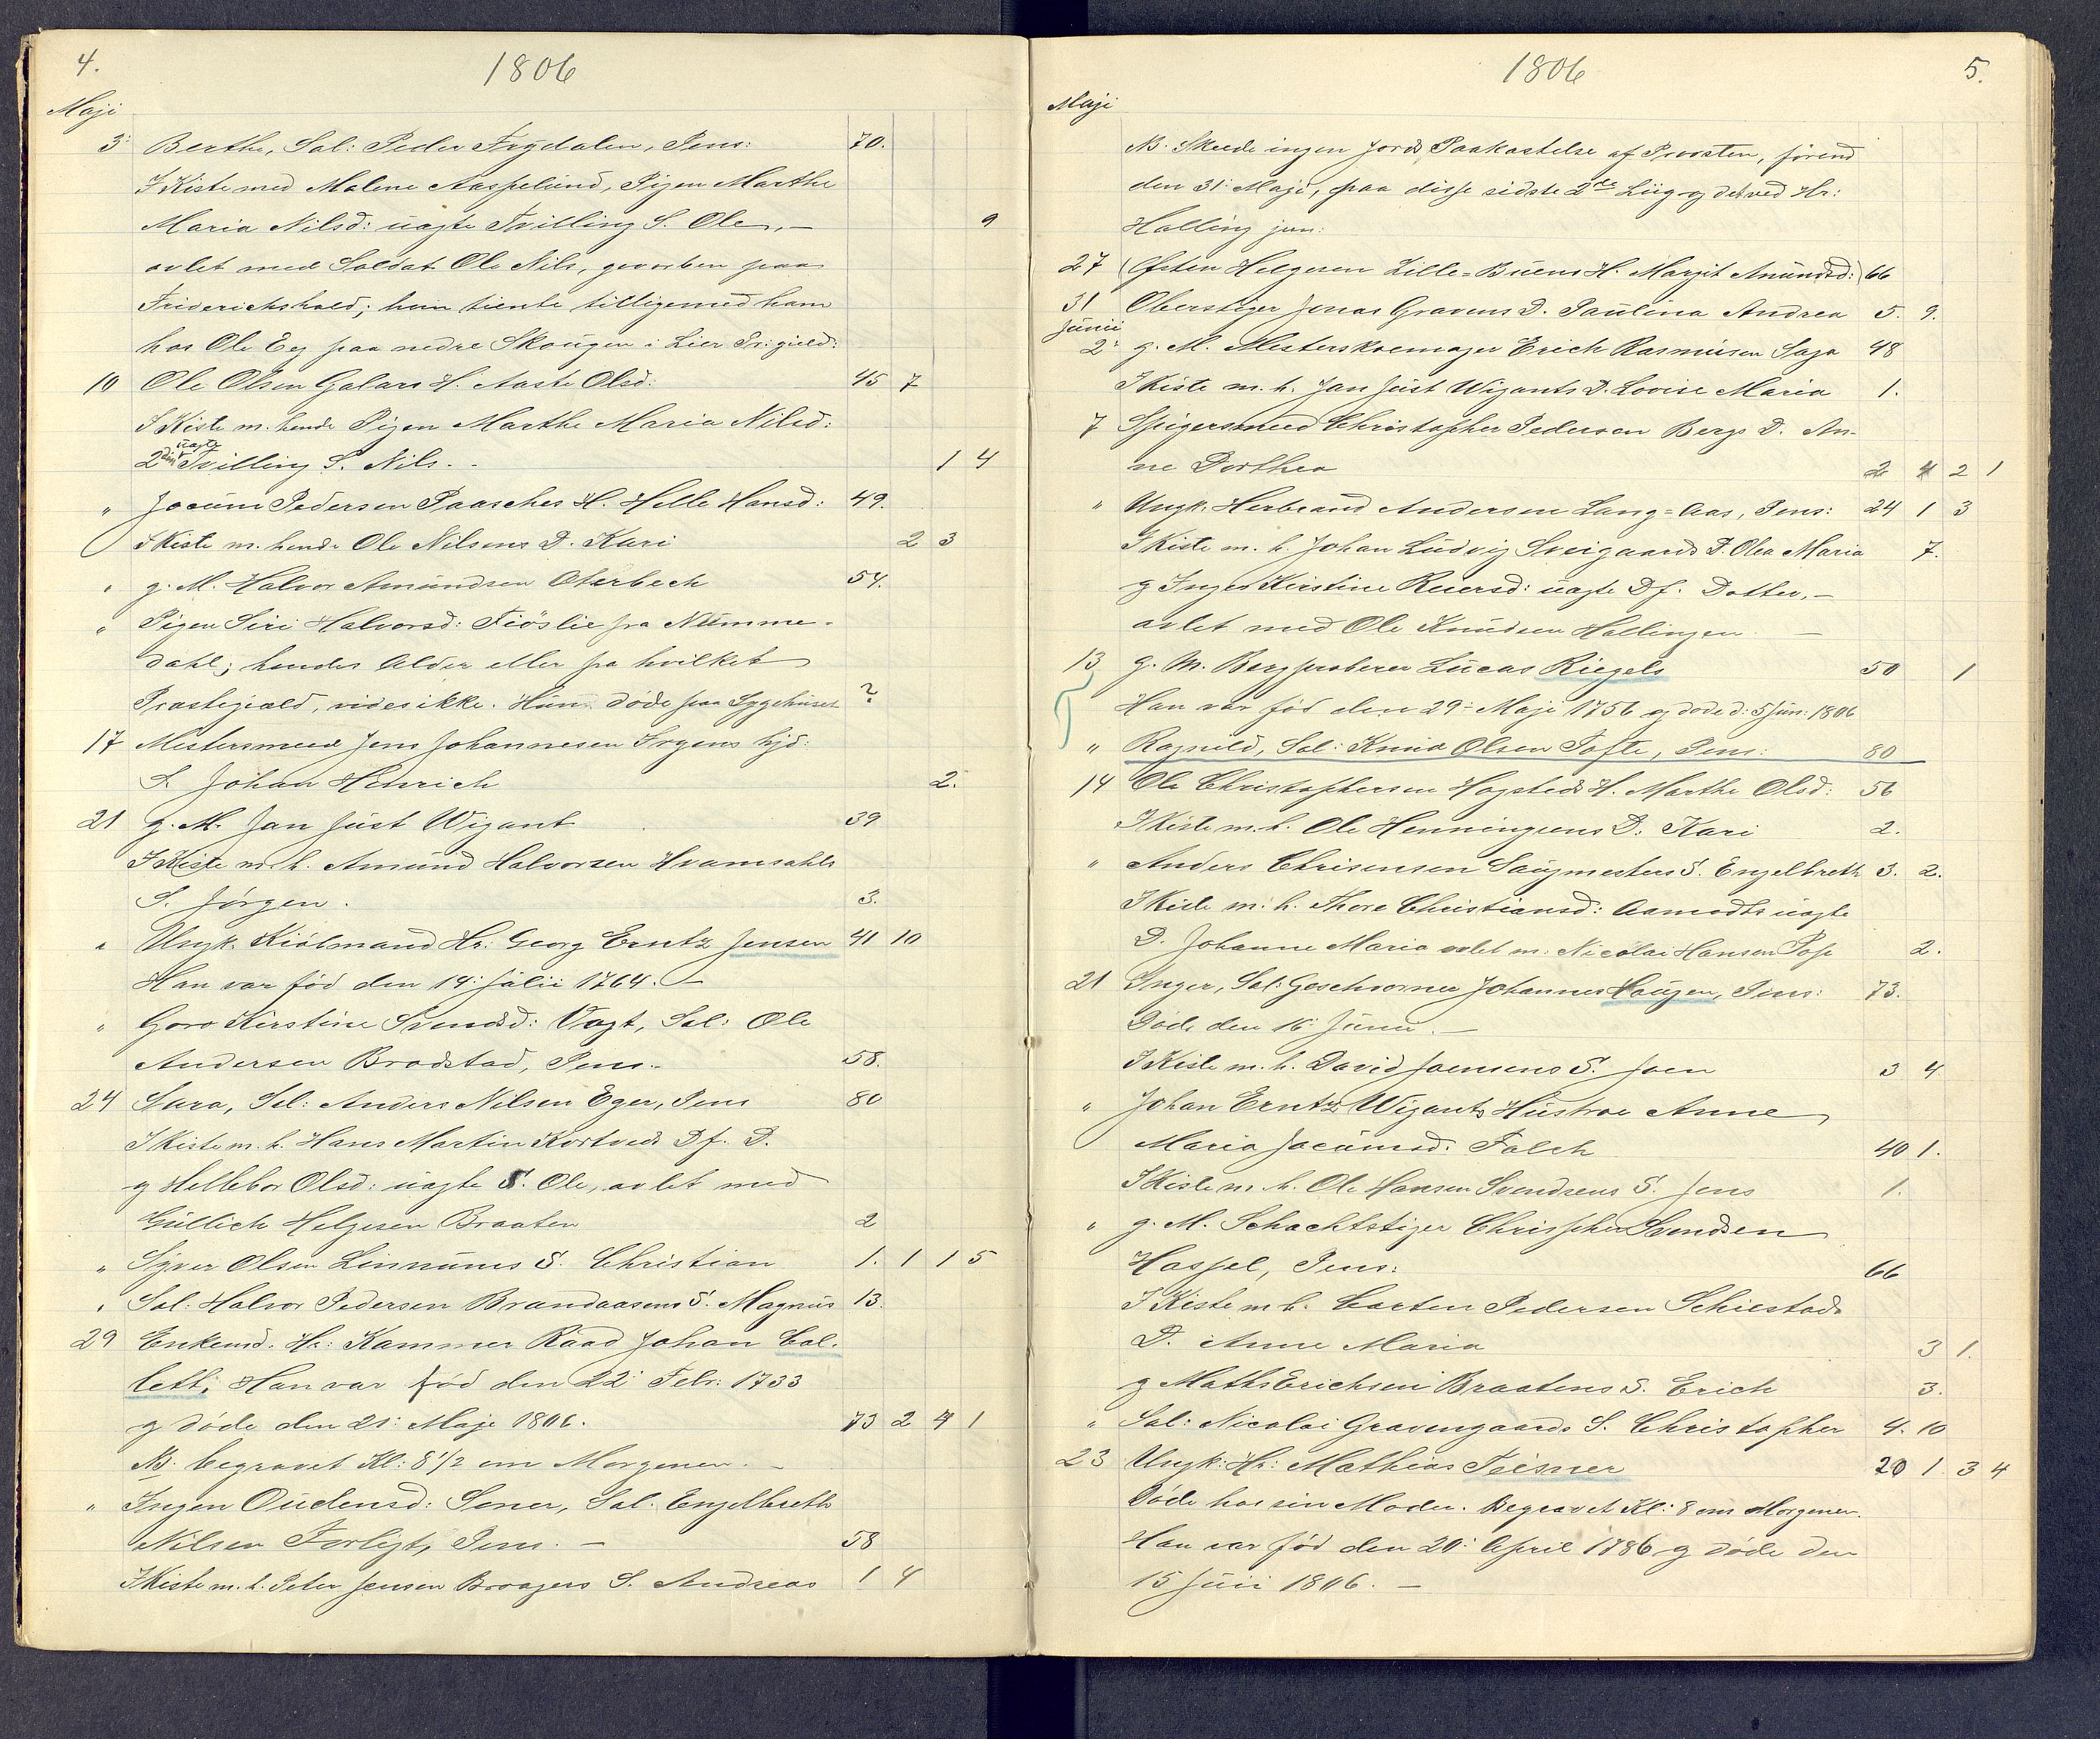 4.
1806
Maji
3: Berthe, Sal: Peder Frydalen, Pens: 70.
I Kiste med Malene Aaspelund, Pigen Marthe
Maria Nilsd: uagte Tvilling S. Ole, - 9
avlet med Soldat Ole Nils, gevorben paa
Friderichshald; hun tiente tilligemed ham
hos Ole Eeg paa nedre Skougen i Lier Pr: gield:
10 Ole Olsen Galaas H. Aaste Olsd: 45 7
I Kiste m. hende Pigen Marthe Maria Nilsd:
2den uagte Tvilling S. Nils. - 1 4
" Jocum Pedersen Paasches H. Helle Hansd: 49.
I Kiste m. hende Ole Nilsens D. Kari 2 3
" g. M. Halvor Amundsen Oterbech 54.
" Pigen Siri Halvorsd: Fiöslie fra Numme-
dahl; hendes Alder eller fra hvilket
Præstegiæld, vides ikke. Hun døde paa Sygehuset ?
17 Mestersmed Jens Johannesen Irgens hjd:
S. Johan Henrich 2.
21 g. M. Jan Just Wigant 39
I Kiste m. h. Amund Halvorsen Hvamsahls
S. Jørgen. 3.
" Ungk. Kiöbmand Hr: Georg Erntz Jensen 41 10
Han var fød den 19: Julii 1764. -
" Goro Kirstine Svendsd: Vogt, Sal: Ole
Andersen Brodstad, Pens. 58.
24 Sara, Sal: Anders Nilsen Eger, Pens 80
I Kiste m. h. Hans Martin Kortveds Df. D.
og Hellebor Olsd: uagte S. Ole, avlet med
Gullich Helgesen Braaten 2
" Syver Olsen Linnums S. Christian 1. 1 1 5
" Sal: Halvor Pedersen Brandaasens S. Magnus 13.
29 Enkemd. Hr: Kammer Raad Johan Col-
lett; Han var fød den 22: Febr: 1733
og døde den 21: Maje 1806. 73 2 4 1
NB. begravet Kl: 8 1/2 om Morgenen. -
" Ingen Oudensd: Sener, Sal. Engelbreth
Nilsen Forligt, Pens. - 58
I Kiste m. h. Peter Jensen Broagers S. Andreas 1 4
1806
5.
Maji
NB. Skeede ingen Jords Paakastelse af Provsten, førend
den 31: Maji, paa disse sidste 2de Liig og det ved Hr:
Halling jun:
27 (Østen Helgesen Lille-Buens H. Margit Amundsd:) 66
31 Oberstiger Jonas Gravens D. Paulina Andrea 5. 9.
Junii
2: g. M. Mesterskoemager Erich Rasmusen Saga 48
I Kiste m. h. Jan Just Wigants D. Lovise Maria 1.
7 Spigersmed Christopher Pedersen Bergs D. An-
ne Dorthea 2 4 2 1
" Ungk. Herbrand Andersen Lang-Aas, Pens: 24 1 3
I Kiste m. h. Johan Ludvig Sveigaards D. Olea Maria 7.
og Inger Kirstine Reiersd: uagte Df. Dotter, -
avlet med Ole Knudsen Hallingen. -
13 g. M. Bergproberer Lucas Riegels 50 1
Han var fød den 29: Maji 1756 og døde d: 5 Jun: 1806
" Ragnild, Sal: Knud Olsen Tofte, Pens: 80
14 Ole Christophersen Hagsteds H. Marthe Olsd: 56
I Kiste m. h. Ole Henningsens D. Kari 2.
" Anders Chrisensen Saugmesters S. Engelbreth 3. 2.
I Kiste m. h. Thore Christiansd: Aamodts uagte
D. Johanne Maria avlet m. Nicolai Hansen Pose 2.
21 Inger, Sal: Geschworner Johannes Haugen, Pens: 73.
Døde den 16 Junii. -
I Kiste m. h. David Joensens S. Joen 3 4
" Johan Erntz Wigants Hustroe Anne
Maria Jacumsd: Falch 40 1.
I Kiste m. h. Ole Hansen Svendsens S. Jens 1.
" g. M. Schachtstiger Christpher Svendsen
Hassel, Pens: 66
I Kiste m. h. Carten Pedersen Schiestads
D. Anne Maria 3 1.
og Maths Erichsen Braatens S. Erich 3.
" Sal: Nicolai Gravengaards S. Christopher 4. 10
23 Ungk: Hr: Mathias Teisner 20 1 3 4
Døde hos sin Moder. Begravet Kl: 8 om Morgenen.
Han var fød den 20: April 1786 og døde den
15 Junii 1806. -